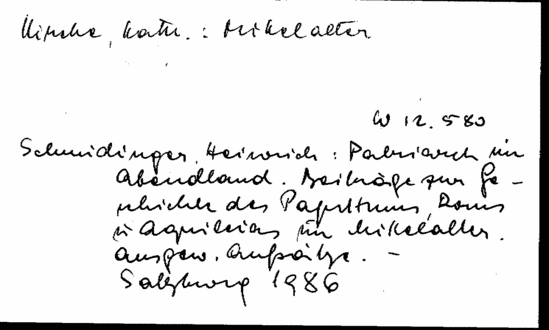 Kirche, kath. : Mittelalter
W 12.580
Schmidinger, Heinrich : Patriarch im
Abendland. Beiträge zur Ge-
schichte des Papsttums, Roms
u. Aquileias im Mittelalter.
Ausgew. Aufsätze. –
Salzburg 1986